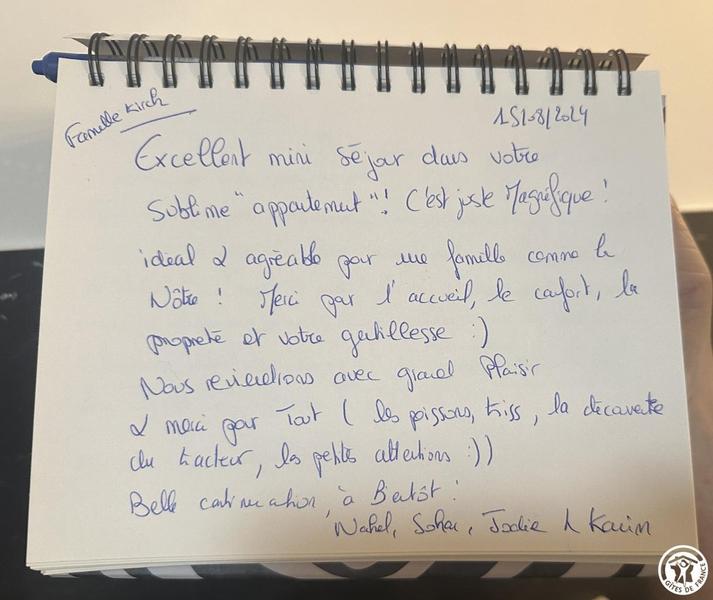 Famille Kirch
15/08/2024
Excellent mini séjour dans votre
Sublime "appartement"! C'est juste Magnifique !
ideal & agréable pour une famille comme la
Nôtre ! Merci pour l'accueil, le confort, la
propreté et votre gentillesse :)
Nous reviendrons avec grand Plaisir
& merci pour Tout ( les poissons, kiss, la découverte
du tracteur, les petites attentions :))
Belle continuation, à Bientôt !
Nahel, Jodie & Karim
GÎTES DE FRANCE